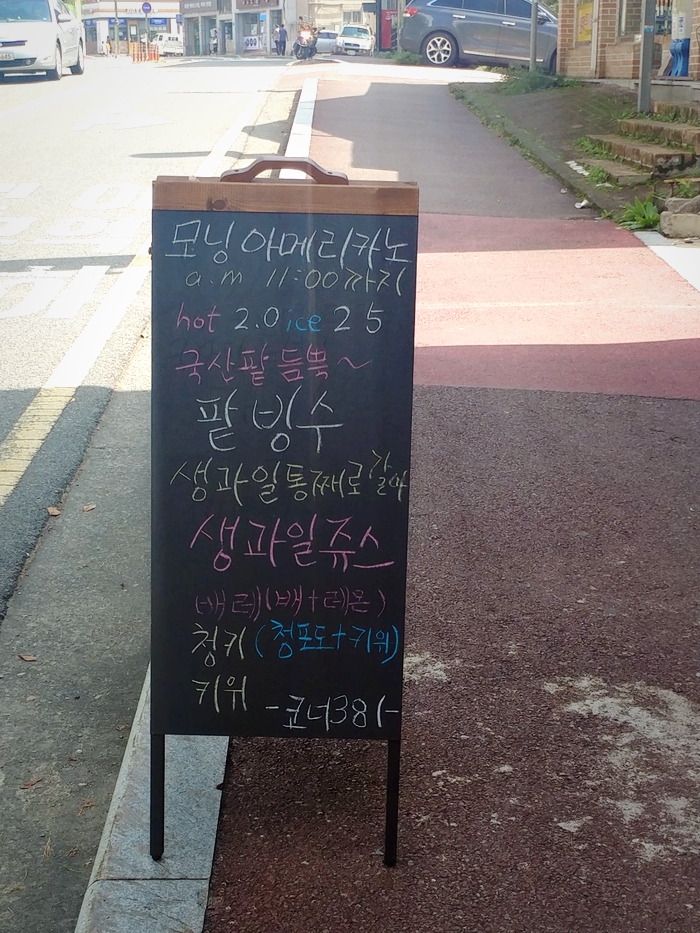 모닝 아메리카노
a.m 11:00까지
hot 2.0 ice 2 5
국산팥 듬뿍~
팥빙수
생과일통째로 갈아
생과일쥬스
배레(배+레몬)
청키(청포도+키위)
키위
-코너381-